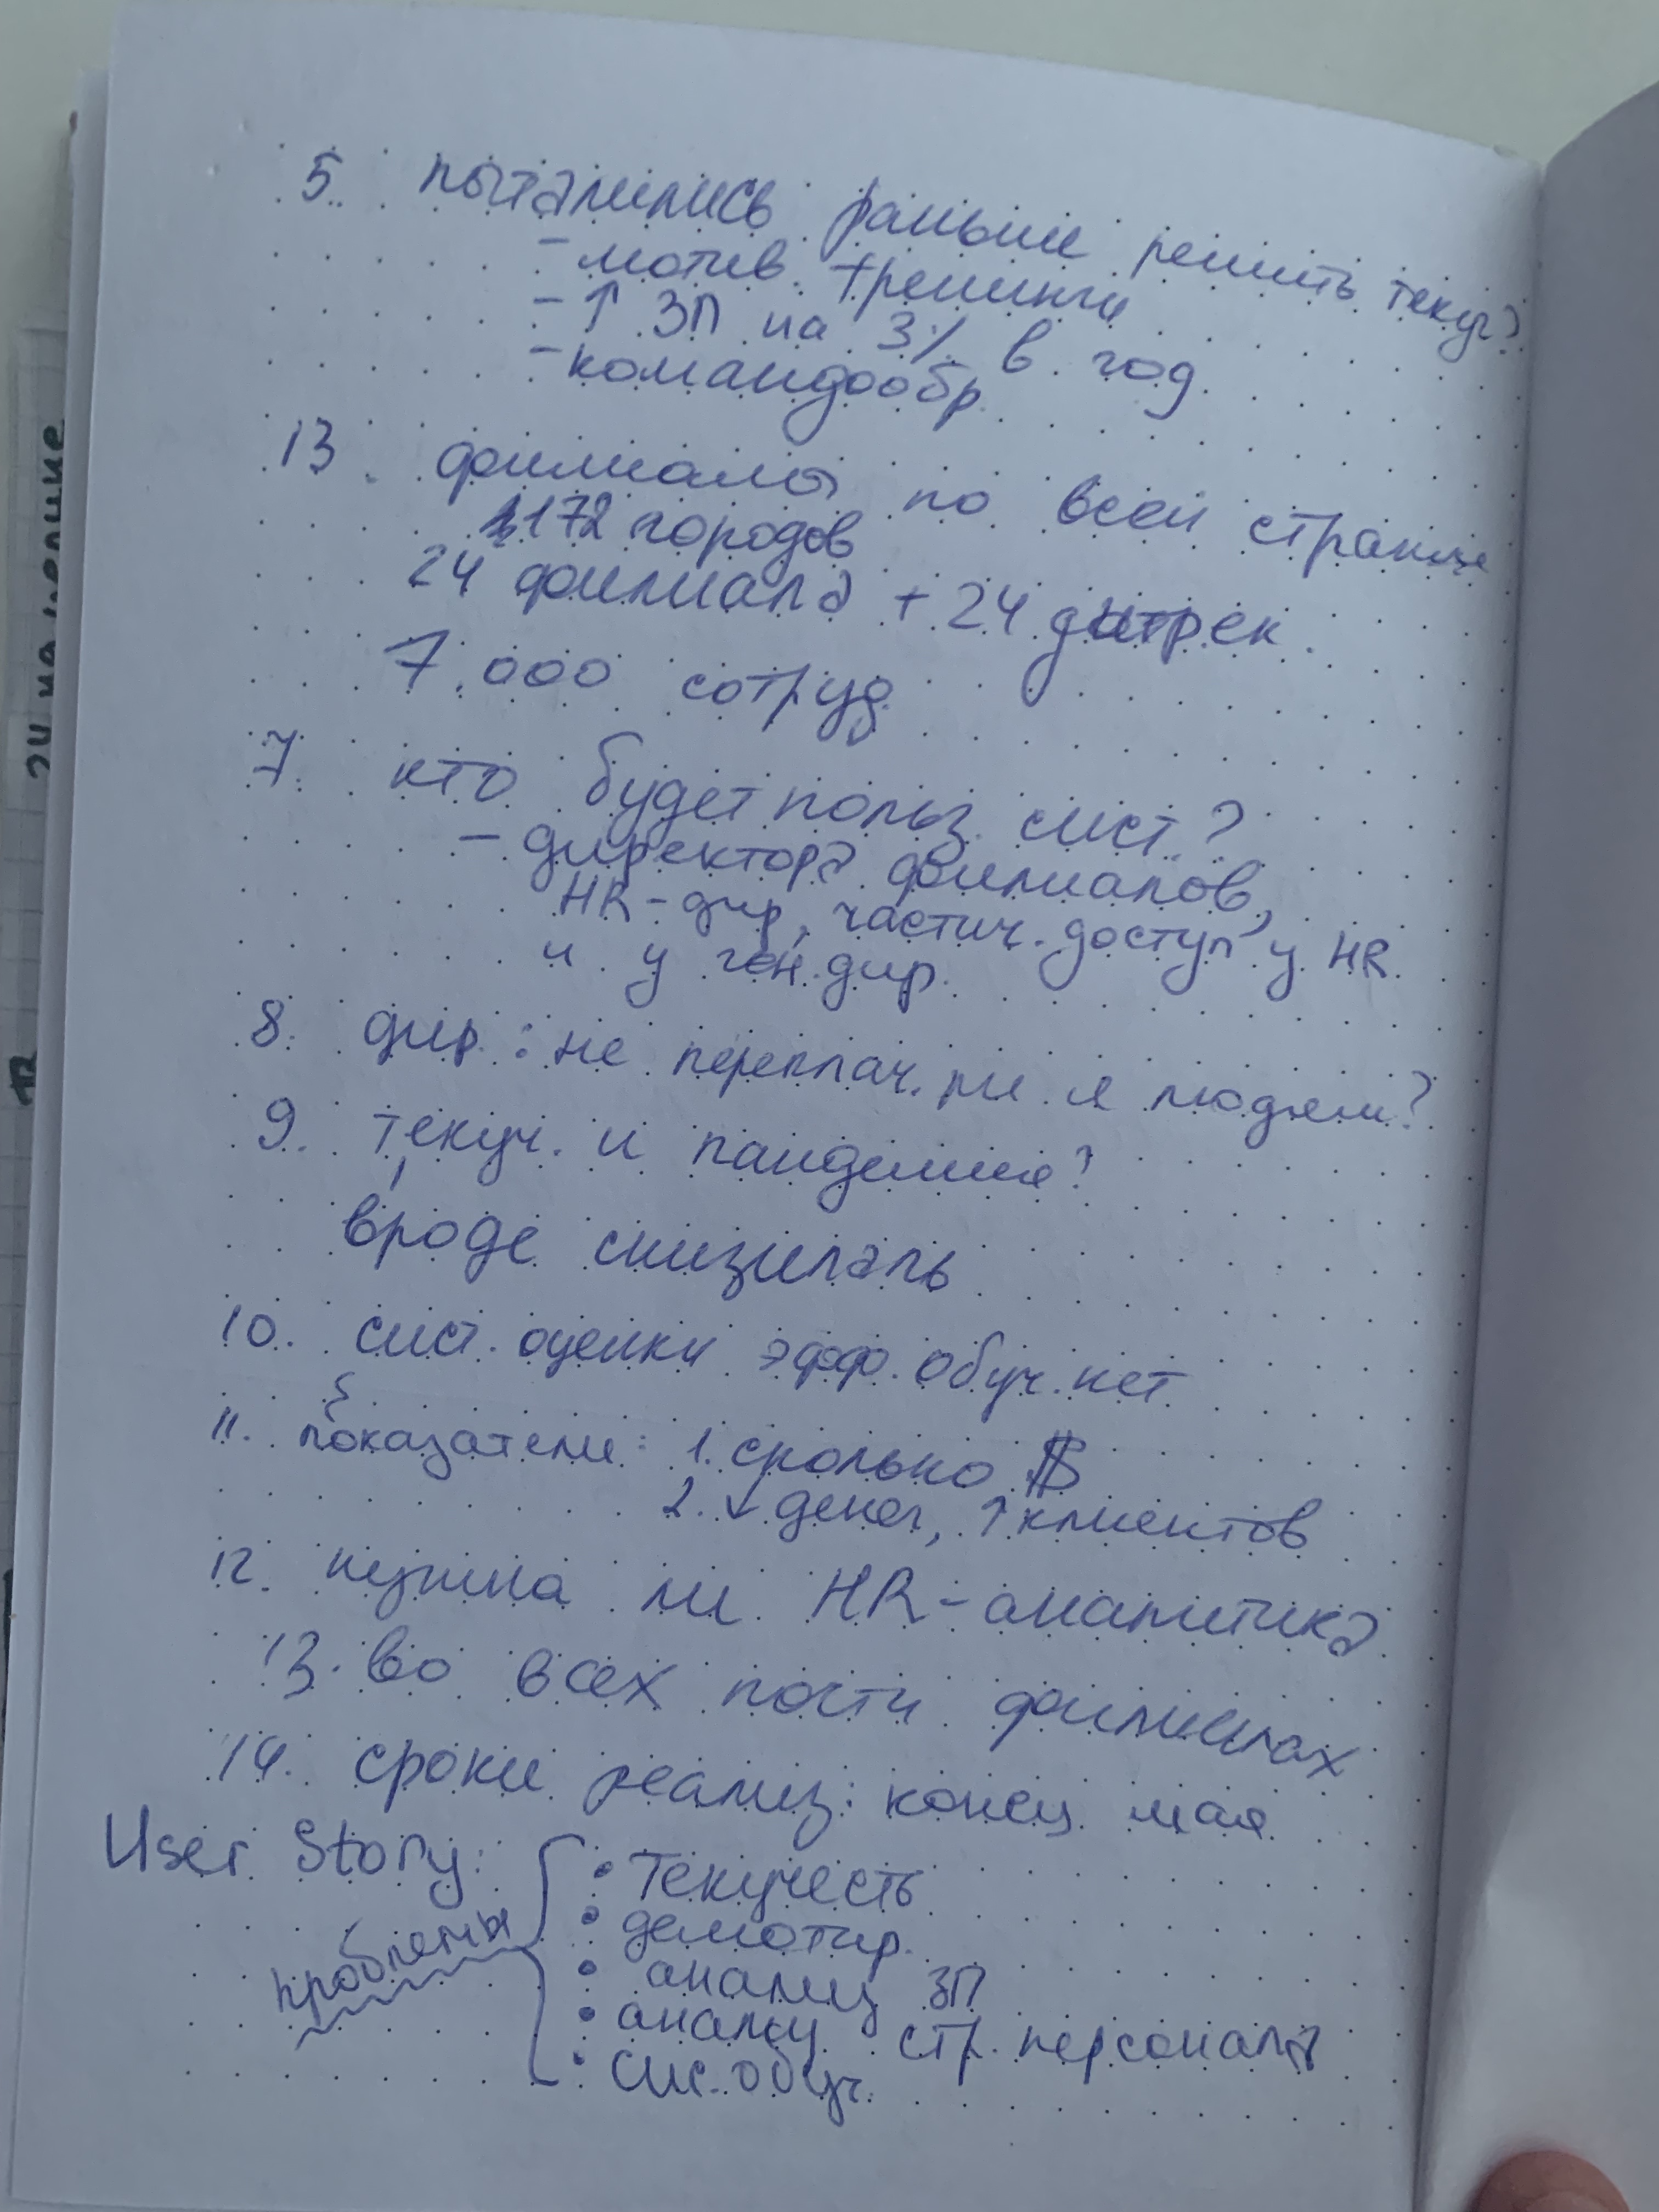 5. пытались раньше решить текуч?
- мотив. тренинги
- ↑ ЗП на 3% в год
- командообр.
13. филиалы по всей стране
172 городов
24 филиала + 24 дирек.
7.000 сотруд
7. кто будет польз. сист.?
- директора филиалов,
HR-дир, частич. доступ у HR
и у ген. дир.
8. дир.: не переплач. ли я людям?
9. текуч. и пандемия?
вроде снизилась
10. сист. оценки эфф. обуч. нет
11. показатели: 1. сколько $
2. ↓ денег, ↑ клиентов
12. нужна ли HR-аналитика
13. во всех почти филиалах
14. сроки реализ: конец мая
User Story:
проблемы
• текучесть
• демотир.
• анализ ЗП
• анализ стр. персонала
• сис. обуч.
24 на